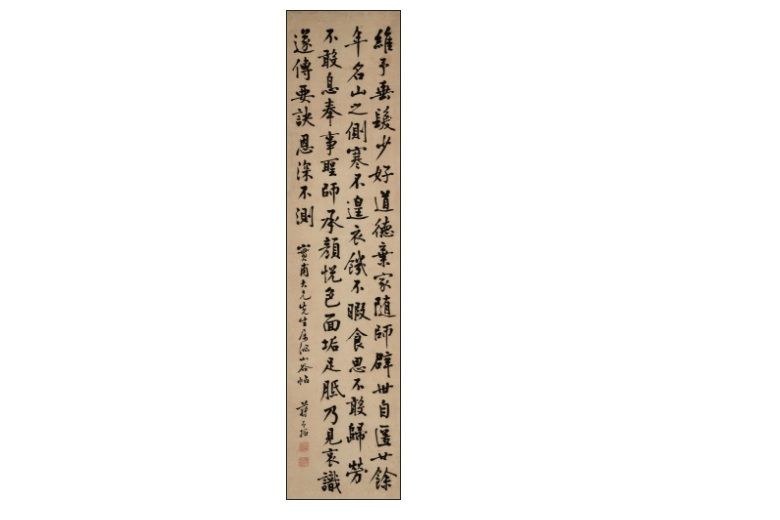 維予垂髮少好道德棄家隨師辟世自匿廿餘
年名山之側寒不遑衣饑不暇食思不敢歸勞
不敢息奉事聖師承顏悅色面垢足胝乃見哀識
遂傳要訣恩深不測
實甫大兄先生屬臨山谷帖 蔣